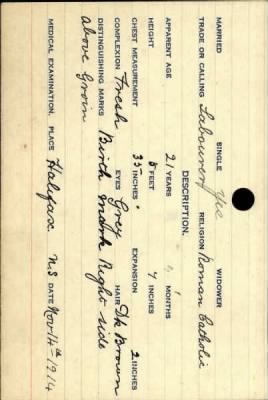 MARRIED SINGLE Yes WIDOWER
TRADE OR CALLING Labourer RELIGION Roman Catholic
DESCRIPTION.
APPARENT AGE 21 YEARS MONTHS
HEIGHT 5 FEET 7 INCHES
CHEST MEASUREMENT 35 INCHES EXPANSION 2 INCHES
COMPLEXION Fresh EYES Grey HAIR Dk Brown
DISTINGUISHING MARKS Birth mark Right side
above Groin
MEDICAL EXAMINATION. PLACE Halifax N.S DATE Nov 14th-1914